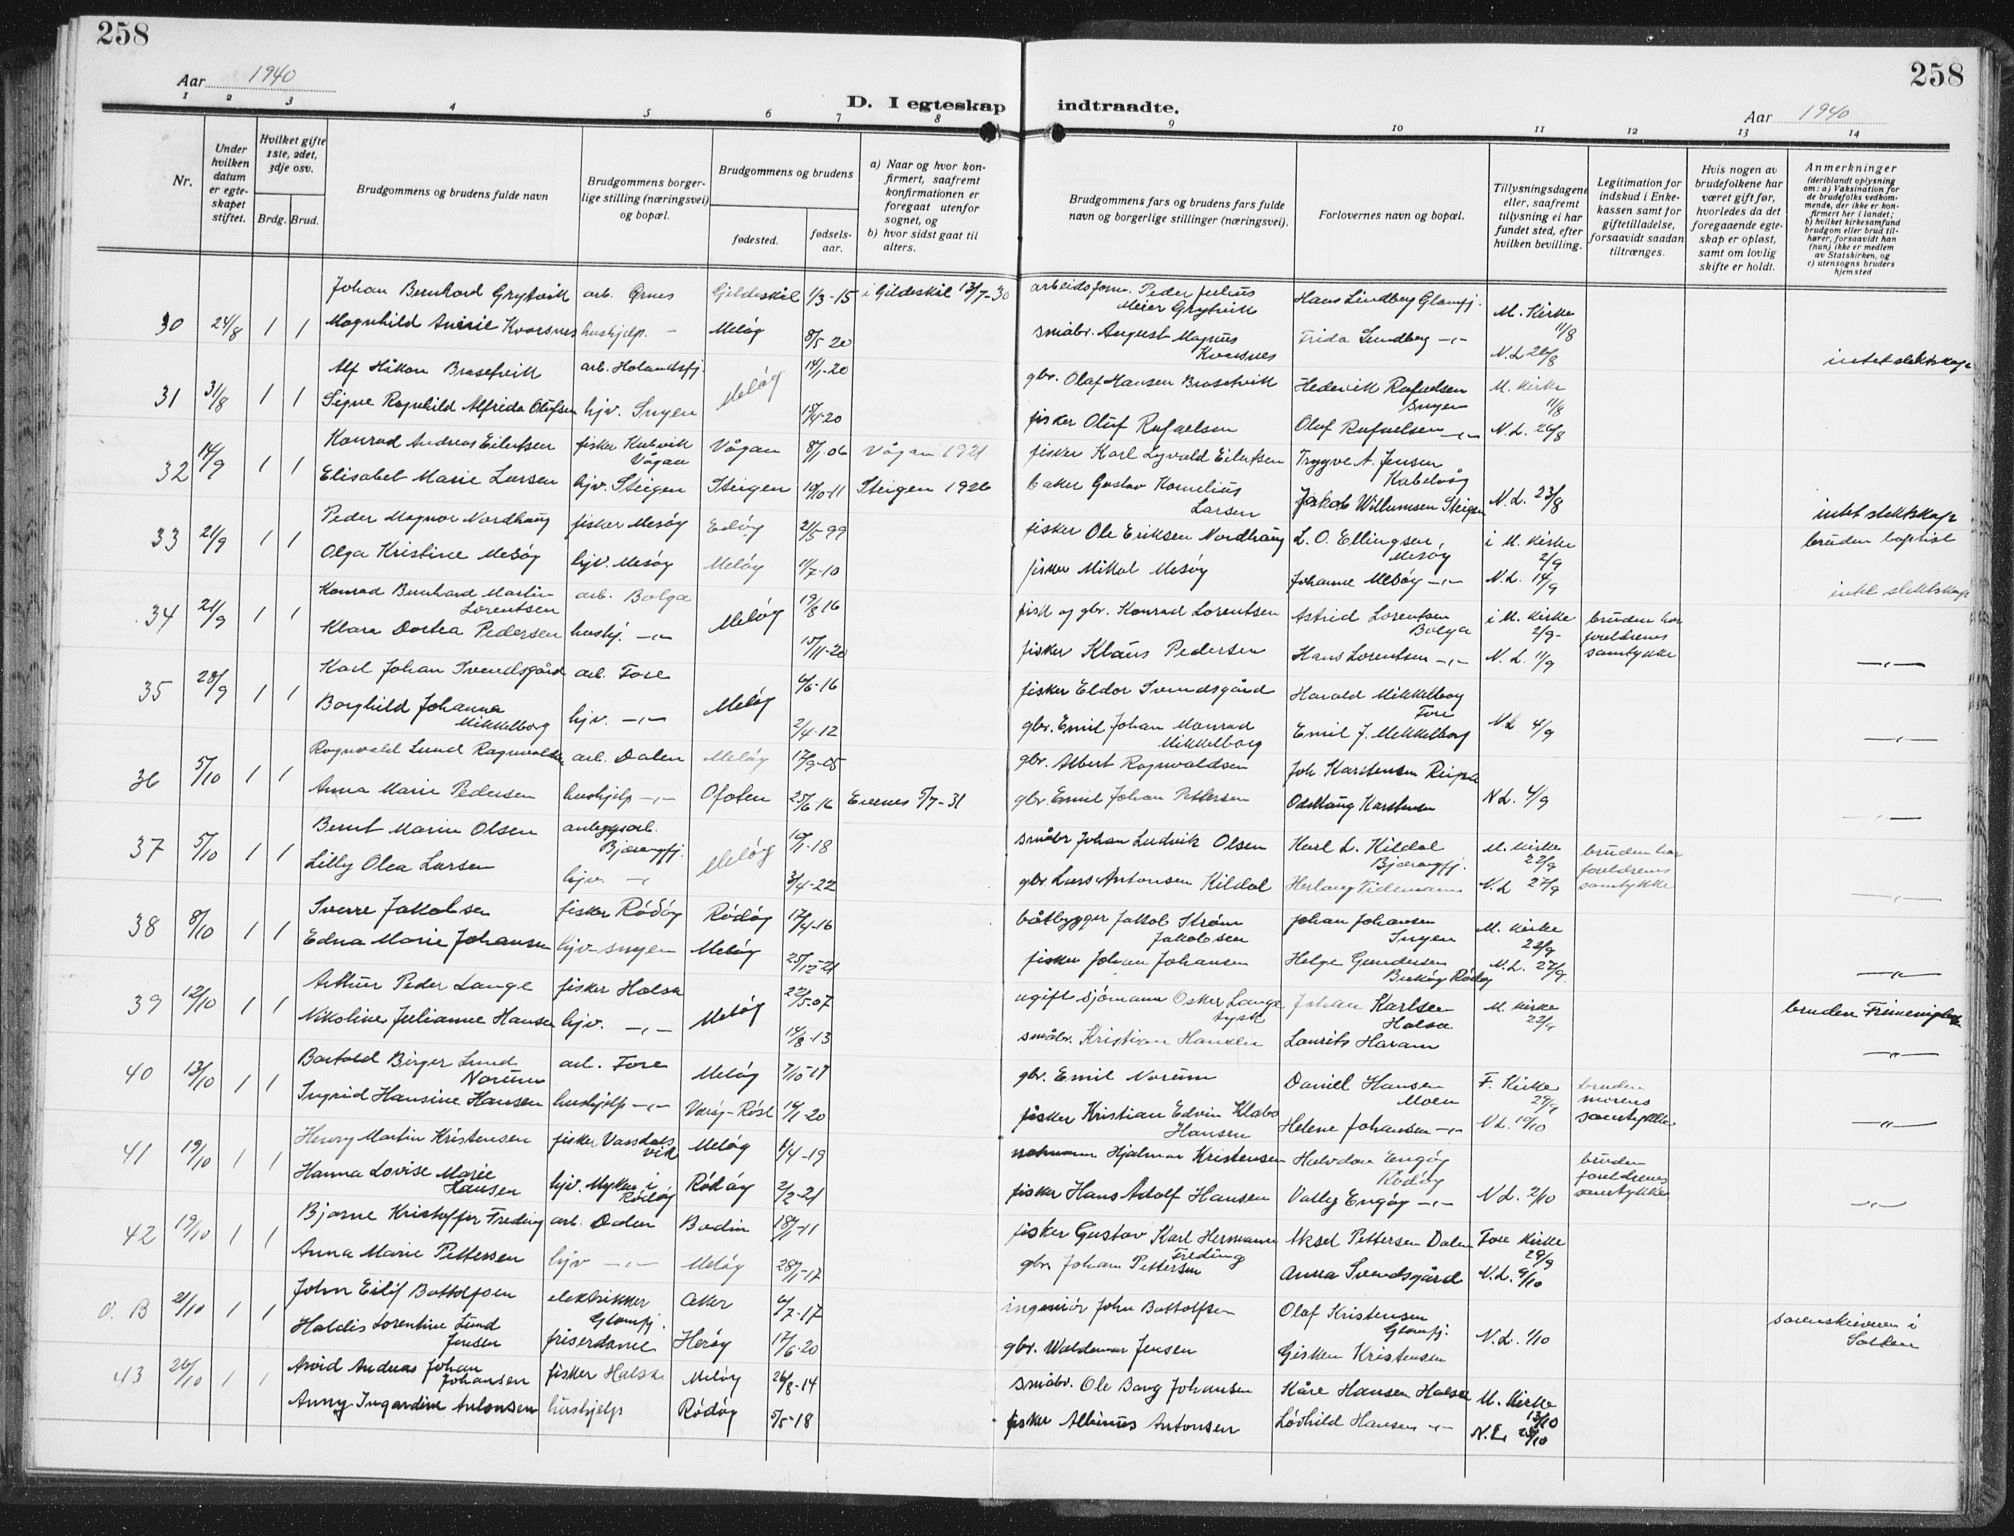 258
258
Aar 1940
D. I egteskap indtraadte.
Aar 1940
1 2 3 4 5 6 7 8 9 10 11 12 13 14
Nr.
Under hvilken datum er egte- skapet stiftet.
Hvilket gifte 1ste, 2det, 3dje osv.
Brdg. Brud.
Brudgommens og brudens fulde navn
Brudgommens borger- lige stilling (næringsvei) og bopæl.
Brudgommens og brudens
fødested.
fødsels- aar.
a) Naar og hvor kon- firmert, saafremt konfirmationen er foregaat utenfor sognet, og
b) hvor sidst gaat til alters.
Brudgommens fars og brudens fars fulde navn og borgerlige stillinger (næringsvei).
Forlovernes navn og bopæl.
Tillysningsdagene eller, saafremt tillysning ei har fundet sted, efter hvilken bevilling.
Legitimation for indskud i Enke- kassen samt for giftetilladelse, forsaavidt saadan tiltrænges.
Hvis nogen av brudefolkene har været gift før, hvorledes da det foregaaende egte- skap er opløst, samt om lovlig skifte er holdt.
Anmerkninger
(deriblandt oplysning om: a) Vaksination for de brudefolks vedkom- mende, der ikke er kon- firmert her i landet; b) hvilket kirkesamfund brudgom eller brud til- hører, forsaavidt han (hun) ikke er medlem av Statskirken, og c) utensogns bruders hjemsted
Johan Bernhard Grytvik arb. Ørnes Gildeskål 1/3-15 i Gildeskål 13/7-30 arbeidsform. Peder Julius Meier Grytvik Hans Lindberg Glomfj. M. Kirke 11/8
30 24/8 1 1 Magnhild Kvarsnes hushjelp - Meløy 8/5 20 småbr. August Magnus Kvarsnes Frida Lindberg -"- N.L 26/8 intet slektskap
Alf Håkon Brasetvik arb. Holandsfj. Meløy 14/1-20 gbr. Olaf Hansen Brasetvik Hedevik Rafaelsen Engen M. Kirke 11/8
31 31/8 1 1 Signe Ragnhild Alfrida Olufsen hjv. 15/4-20 fisker Oluf Rafaelsen Oluf Rafaelsen -"- N.L. 26/8
Konrad Andreas Eilertsen fisker Kabelvik Vågan Vågan 8/1-06 Vågan 1921 fisker Karl Lyvald Eilertsen Trygve A. Jensen Kabelvåg
32 14/9 1 1 Elisabet Marie Larsen hjv. Steigen Steigen 19/10-11 Steigen 1926 baker Gustav Kornelius Larsen Jakob Willumsen Steigen N.L. 23/8 intet slektskap
Peder Magnor Nordhaug fisker Mesøy Edøy 21/5-99 fisker Ole Eriksen Nordhaug L. O. Ellingsen Mesøy i M. Kirke 2/9 bruden baptist
33 21/9 1 1 Olga Kristine Mesøy hjv. Mesøy Meløy 11/7-10 fisker Mikal Mesøy Johanne Mesøy -"- N.L. 14/9 intet slektskap
Konrad Bernhard Martin Lorentsen arb. Bolga Meløy 19/8-16 fisk og gbr. Konrad Lorentsen Astrid Lorentsen Bolga i M. Kirke 2/9- bruden har foreldrenes samtykke
34 21/9 1 1 Klara Dortea Pedersen hushj. -"- 15/11-20 fisker Klaus Pedersen Hans Lorentsen -"- N.L. 11/9 -"-
Karl Johan Svendsgård arb. Fore Meløy 4/6-16 fisker Eldor Svendsgård Harald Mikkelborg Fore
35 28/9 1 1 Borghild Johanna Mikkelborg hjv. -"- 2/4-12 gbr. Emil Johan Monrad Mikkelborg Emil J. Mikkelborg N.L 4/9 -"-
Ragnvald Lund Ragnvaldsen arb. Dalen Meløy 17/9-05 gbr. Albert Ragnvaldsen Joh Karstensen Reipå
36 5/10 1 1 Anna Marie Pedersen hushjelp -"- Ofoten 25/6-16 Evenes 5/7-31 gbr. Emil Johan Pettersen Karstensen N.L. 4/9 -"-
Bernt Marin Olsen anleggsarb. Bjærangfj. Meløy 19/1-18 småbr Johan Ludvik Olsen Karl L. Kildal Bjærangfj. M. Kirke 22/9 bruden har foreldrenes samtykke
37 5/10 1 1 Lilly Olea Larsen hjv. -"- 3/4-22 gbr Lars Antonsen Kildal N.L 27/9 -"-
Sverre Jakobsen fisker Rödöy Rödöy 17/4-16 båtbygger Jakob Strøm Jakobsen Johan Johansen Engen M. Kirke 22/9
38 8/10 1 1 Edna Marie Johansen hjv. Engen Meløy 25/12-21 fisker Johan Johansen Helge Gundersen Rödöy N.L. 27/9 -"-
Arthur Peder Lange fisker Halsa Meløy 22/5-07 ugift sjömann Oskar Lange tysk Johan Karlsen Halsa M. Kirke 22/9 bruden
39 12/10 1 1 Nikoline Julianne Hansen hjv. -"- 14/8-13 småbr. Kristian Hansen Laurits Haram -"-
Bartold Birger Lund Norum arb. Fore Meløy 7/10-17 gbr. Emil Norum Daniel Hansen Moen F. Kirke 29/9 bruden morens samtykke
40 13/10 1 1 Ingrid Hansine Hansen hushjelp -"- Værøy-Røst 14/1-20 fisker Kristian Edvin Klabo Hansen Helene Johansen -"- N.L. 10/10 -"-
Henry Martin Kristensen fisker Vassdalsvik Meløy 4/4-19 Hjalmar Kristensen Halvdan Engøy Rödöy bruden foreldrenes samtykke
41 19/10 1 1 Hanna Lovise Marie Hansen hjv. Myken i Rödöy Rödöy 2/2-21 fisker Hans Adolf Hansen Valby Engøy -"- N.L. 2/10 -"-
Bjarne Kristoffer Freding arb. Dalen Bodin 18/7-11 fisker Gustav Karl Hermann Freding Aksel Pettersen Dalen Fore Kirke 29/9
42 19/10 1 1 Anna Marie Pettersen hjv -"- Meløy 28/1-17 gbr. Johan Pettersen Anna Svendsgård N.L. 9/10
John Eilif Bottolfsen elektrikker Glomfj. Aker 6/7-17 ingeniør John Bottolfsen Olaf Kristensen Glomfj.
O. B 21/10 1 1 Haldis Lorentine Lund Jensen friserdame Herøy 17/6-20 gbr. Waldemar Jensen Gisken Kristensen N.L. 1/10 sorenskriveren i Salten
Arvid Andreas Johan Johansen fisker Halsa Meløy 26/8-14 småbr. Ole Bang Johansen Kåre Hansen Halsa M. Kirke 13/10
43 26/10 1 1 Anny Ingardine Antonsen hushjelp Rödöy 5/5-18 fisker Albinus Antonsen Lovhild Hansen -"- N.L. 25/10